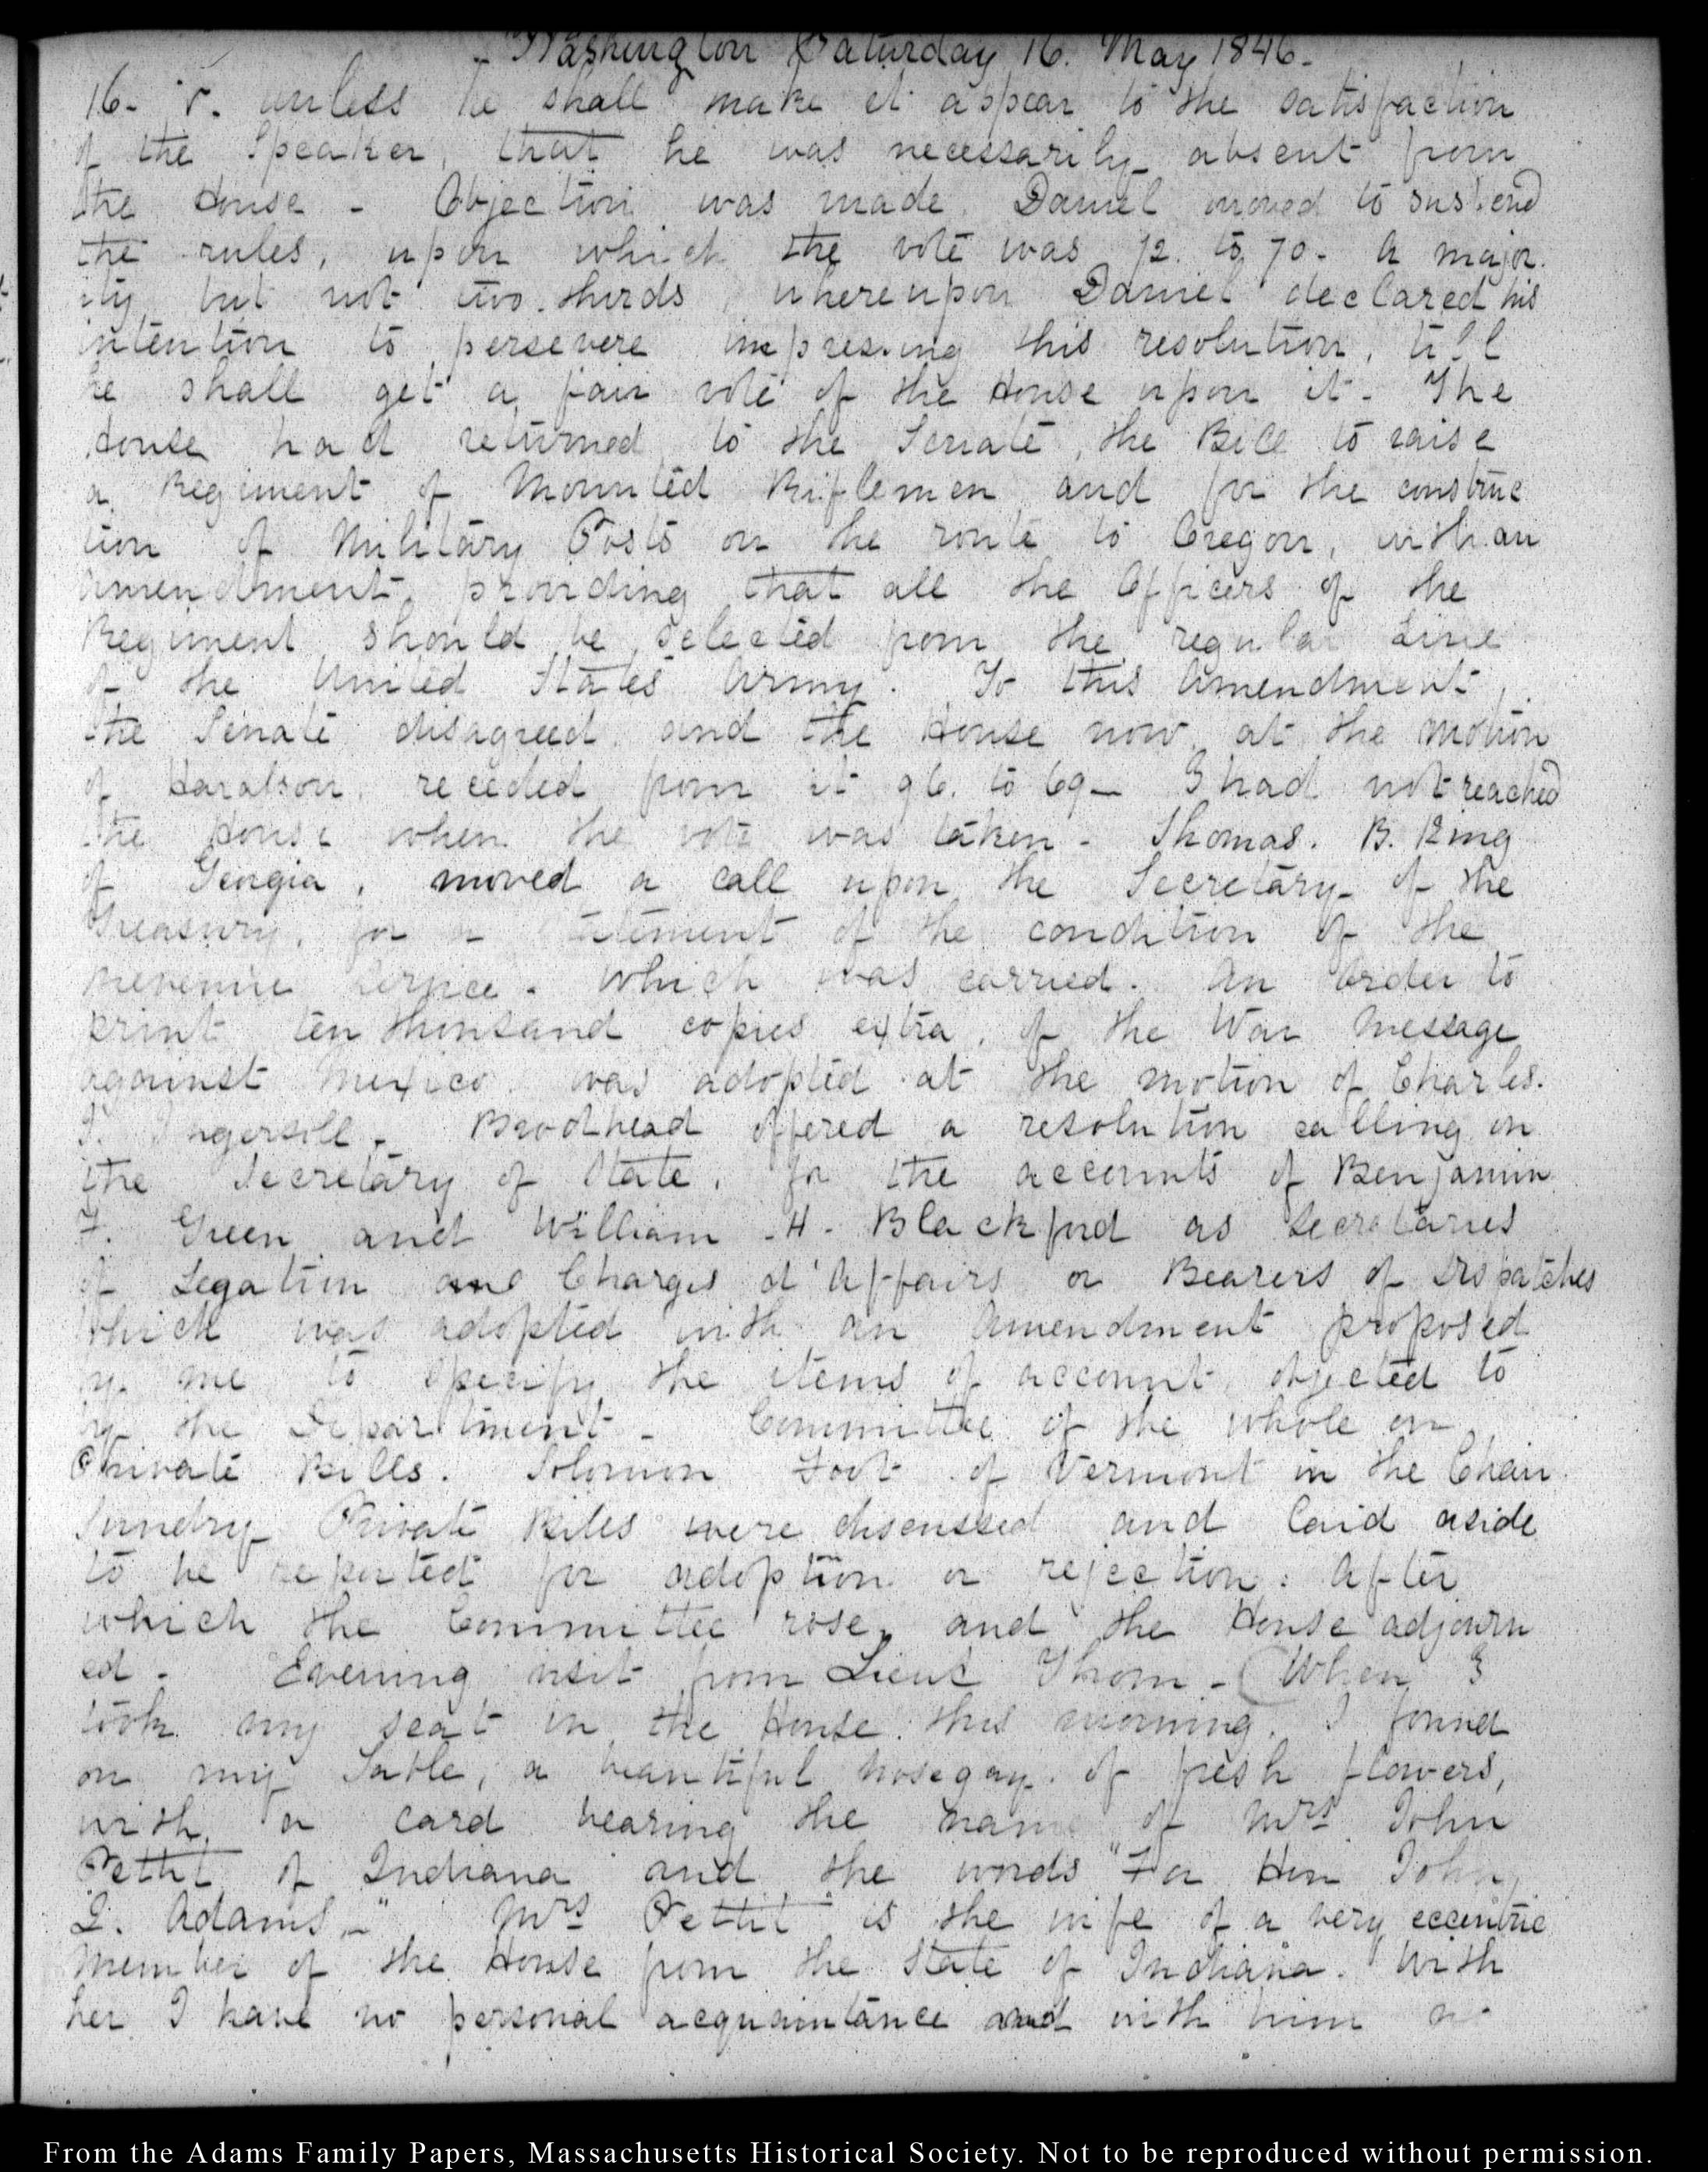 Washington Saturday 16. May 1846.
16. V. unless he shall make it appear to the satisfaction
of the Speaker, that he was necessarily absent from
the House - Objection was made. Daniel moved to suspend
the rules, upon which the vote was 72. to 70. a major
ity but not two thirds, whereupon Daniel declared his
intention to persevere in pressing this resolution, till
he shall get a fair vote of the House upon it. The
House had returned to the Senate, the Bill to raise
a Regiment of Mounted Riflemen and for the construc
tion of Military Posts on the route to Oregon, with an
amendment, providing that all the Officers of the
Regiment should be selected from the regular Line
of the United States Army. To this Amendment,
the Senate disagreed and the House now at the motion
of Haralson receded from it 96. to 69 - I had not reached
the House when the vote was taken - Thomas. B. King
of Georgia, moved a call upon the Secretary of the
Treasury, for a statement of the condition of the
revenue service - which was carried. An Order to
print ten thousand copies extra, of the War Message
against Mexico was adopted at the motion of Charles.
J. Ingersoll. Brodhead offered a resolution calling on
the Secretary of State, for the accounts of Benjamin
F. Green and William H. Blackford as Secretaries
of Legation and Charges d'Affairs or Bearers of Dispatches
which was adopted with an Amendment proposed
by me to specify the items of account, objected to
by the Department - Committee of the whole on
Private Bills. Solomon Foot of Vermont in the Chair.
Sundry Private Bills were discussed and laid aside
to be reported for adoption or rejection: After
which the Committee rose, and the House adjourn
ed. Evening visit from Lieut Thom - (When I
took my seat in the House this morning, I found
on my Table, a beautiful Nosegay of fresh flowers,
with a card bearing the name of Mrs John
Pettit of Indiana and the words "For Hon John
Q. Adams." Mrs Pettit is the wife of a very eccentric
Member of the House from the State of Indiana. With
her I have no personal acquaintance and with him
From the Adams Family Papers, Massachusetts Historical Society. Not to be reproduced without permission.